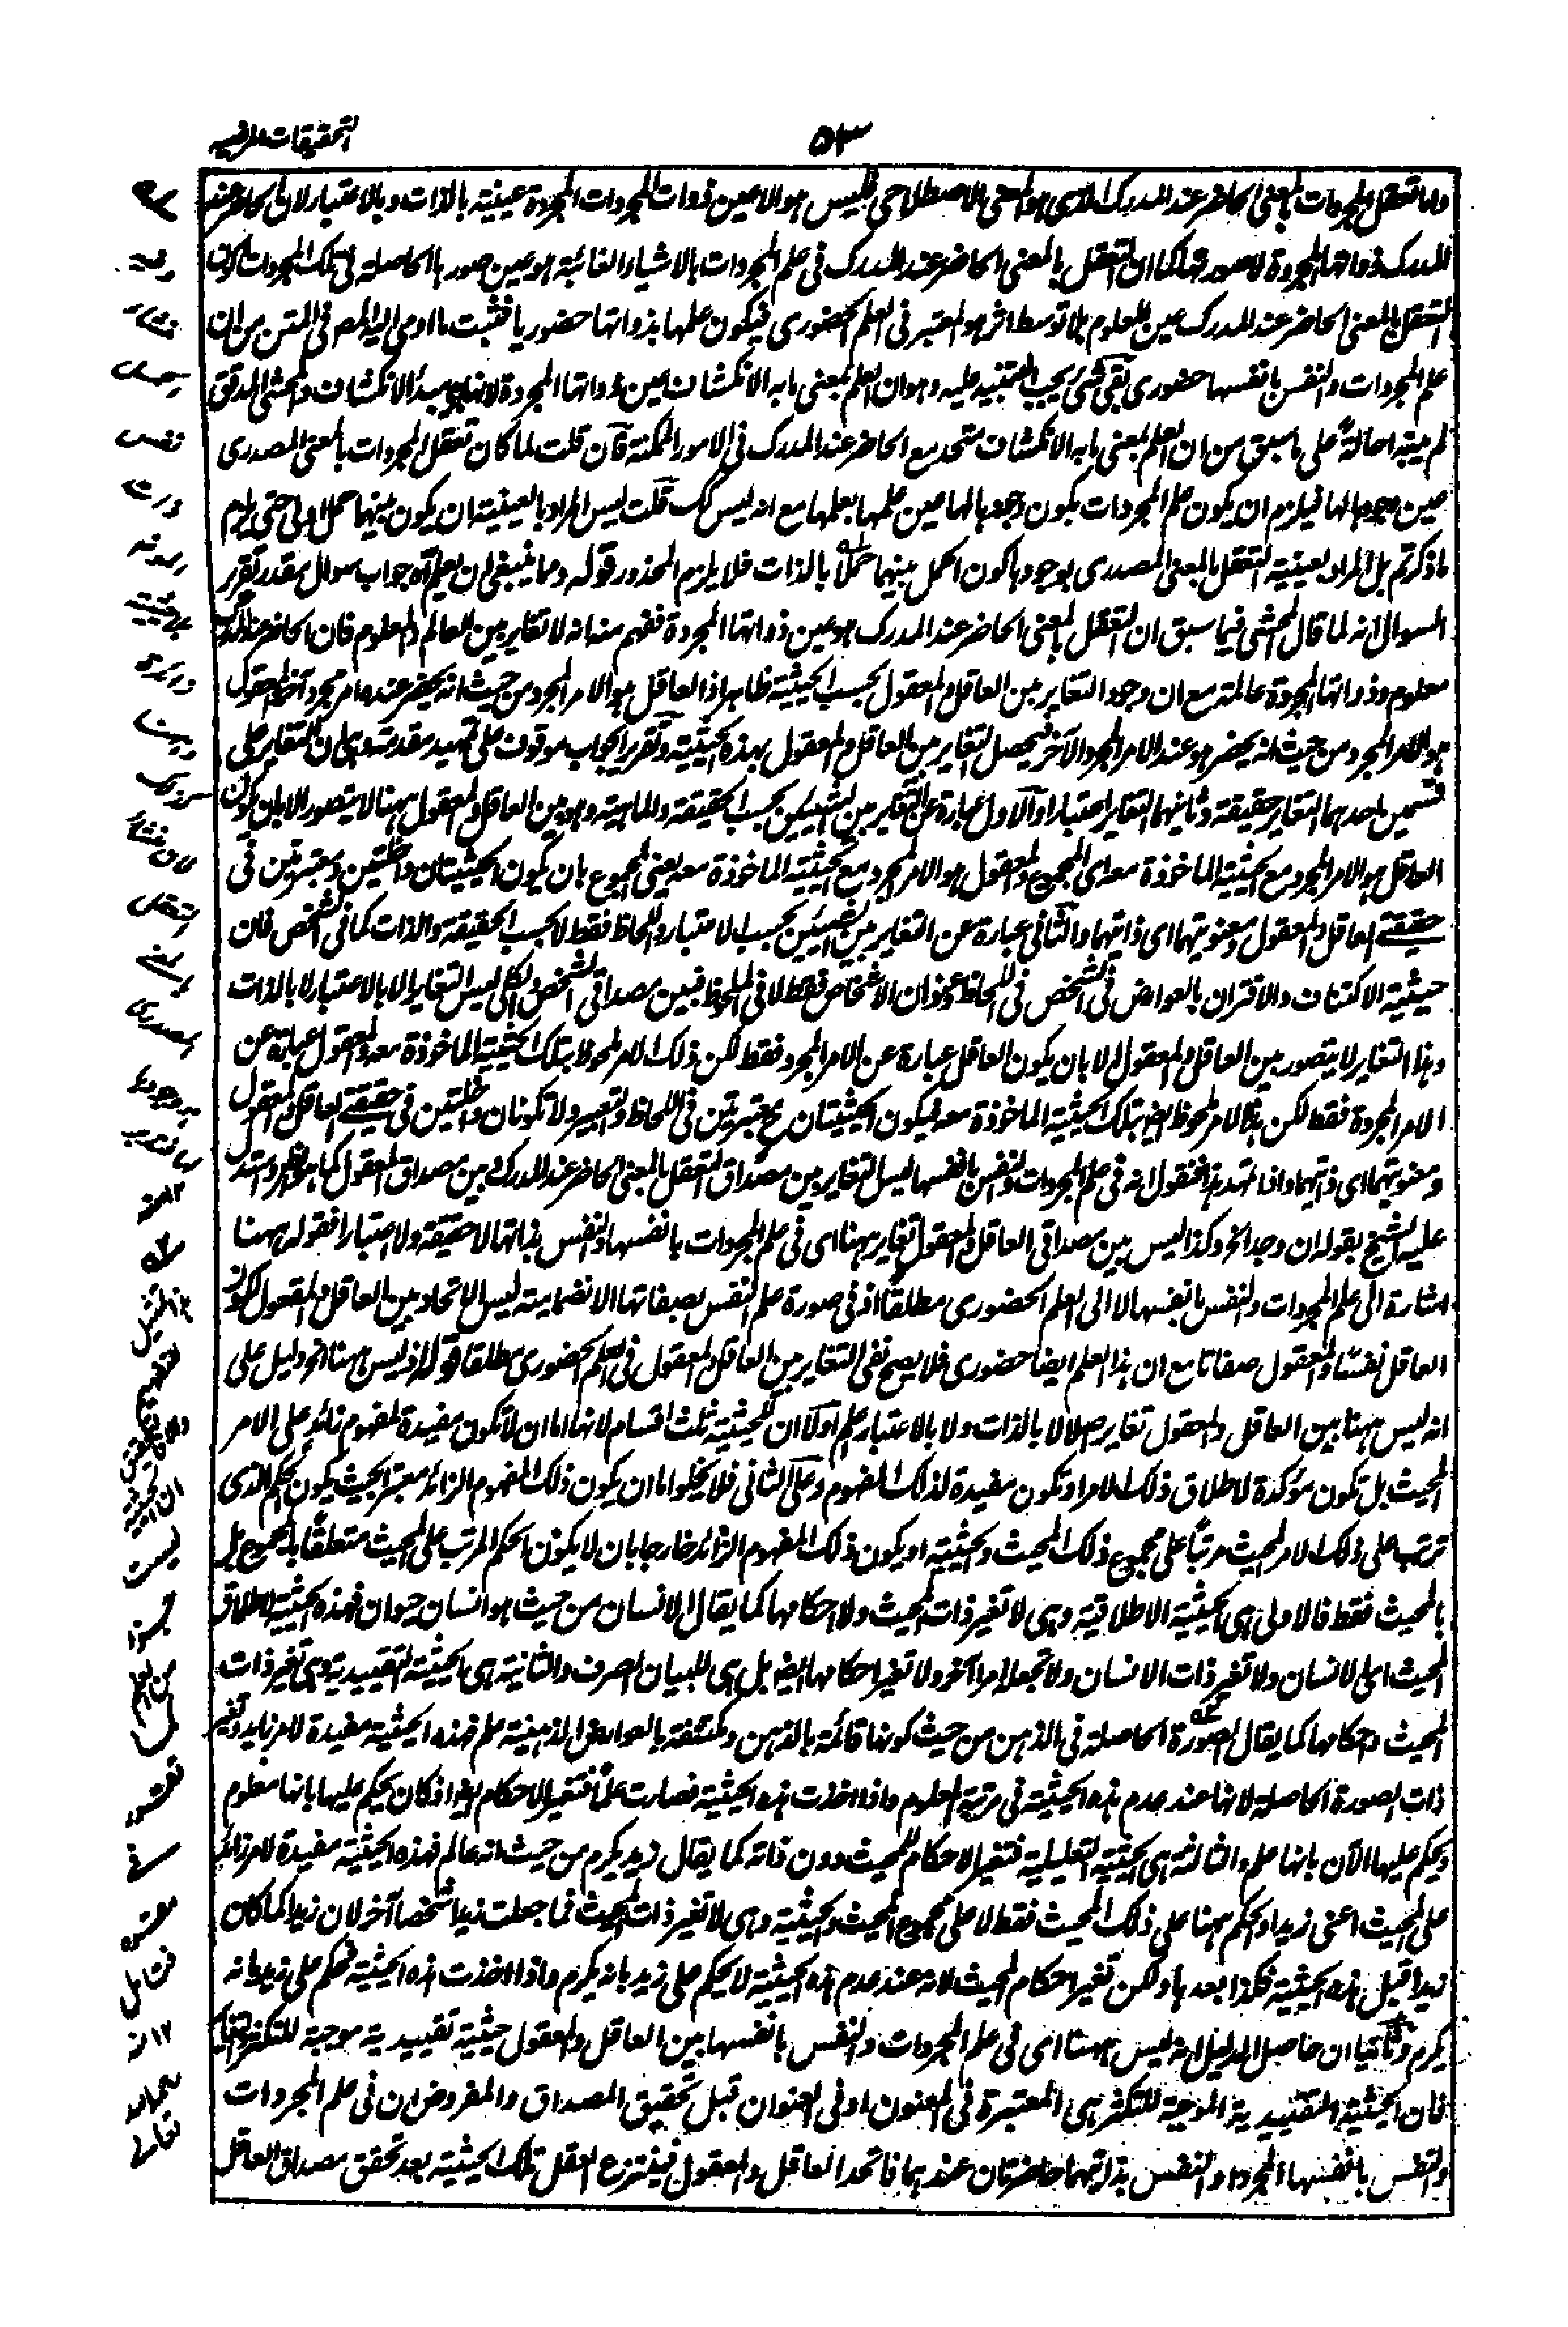 ٥٣
التحقيقات المرضيه
واما تعقل المجردات بالمعنى الحاضر عند المدرك الذى هو المعنى الاصطلاحى فليس هو الا عين ذوات المجردات المجردة عينية بالذات وبالاعتبار لان الحاضر عند
المدرك ذواتها المجردة لا صورتها كما ان التعقل بالمعنى الحاضر عند المدرك فى علم المجردات بالاشياء الغائبة هو عين صورها الحاصلة فى تلك المجردات لكون
التعقل بالمعنى الحاضر عند المدرك عين المعلوم بلا توسط اثر هو المعتبر فى العلم الحضورى فيكون علمها بذواتها حضوريا فثبت ما اومى اليه المصـ فى المتن من ان
علم المجردات والنفس بانفسها حضورى بقى شئ يجب التنبيه عليه وهو ان العلم بمعنى ما به الانكشاف عين ذواتها المجردة لانها هو مبدأ الانكشاف والمحشى المدقق
لم ينبه احالة على ما سبق من ان العلم بمعنى ما به الانكشاف متحد مع الحاضر عند المدرك فى الامور الممكنة فآن قلت لما كان تعقل المجردات بالمعنى المصدرى
عين وجودها لها فيلزم ان يكون علم المجردات بكون وجودها لها عين علمها بعلمها مع انه ليس كك قلت ليس المراد بالعينية ان يكون بينهما حمل اولى حتى يلزم
ما ذكرتم بل المراد بعينية التعقل بالمعنى المصدرى بوجودها كون الحمل بينهما حملا بالذات فلا يلزم المحذور قوله ومما ينبغى ان يعلم آه جواب سوال مقدر تقرير
السوال انه لما قال المحشى فيما سبق ان التعقل بالمعنى الحاضر عند المدرك هو عين ذواتها المجردة ففهم منه انه لا تغاير بين العالم والمعلوم فان الحاضر عند المدرك
معلوم وذواتها المجردة عالمة مع ان وجود التغاير بين العاقل والمعقول بحسب الحيثية ظاهر اذ العاقل هو الامر المجرد من حيث انه يحضر عنده امر مجرد آخر والمعقول
هو الامر المجرد من حيث انه يحضر هو عند الامر المجرد الآخر فيحصل التغاير بين العاقل والمعقول بهذه الحيثية وتقرير الجواب موقوف على تمهيد مقدمة وهى ان التغاير على
قسمين احدهما التغاير حقيقة وثانيهما التغاير اعتبارا والآول عبارة عن التغاير بين الشيئين بحسب الحقيقة والماهية وهو بين العاقل والمعقول ههنا لا يتصور الا بان يكون
العاقل هو الامر المجرد مع الحيثية الماخوذة معه اى المجموع والمعقول هو الامر المجرد مع الحيثية الماخوذة معه يعنى المجموع بان يكون الحيثيتان داخلتين ومعتبرتين فى
حقيقتى العاقل والمعقول ومعنونيهما اى ذاتيهما والثانى عبارة عن التغاير بين الشيئين بحسب الاعتبار واللحاظ فقط لا بحسب الحقيقة والذات كما فى الشخص فان
حيثية الاكتناف والاقتران بالعوارض فى الشخص فى اللحاظ وعنوان الاشخاص فقط لا فى الملحوظ فبين مصداقى الشخص والكلى ليس التغاير الا بالاعتبار لا بالذات
وهذا التغاير لا يتصور بين العاقل والمعقول الا بان يكون العاقل عبارة عن الامر المجرد فقط لكن ذلك الامر ملحوظ بتلك الحيثية الماخوذة معه والمعقول عبارة عن
الامر المجرد فقط لكن هذا الامر ملحوظ ايضا بتلك الحيثية الماخوذة معه فيكون الحيثيتان ح معتبرتين فى اللحاظ والتعبير ولا تكونان داخلتين فى حقيقتى العاقل والمعقول
ومعنونيهما اى ذاتيهما واذا تمهد هذا فنقول انه فى علم المجردات والنفس بانفسها ليس التغاير بين مصداق التعقل بالمعنى الحاضر عند المدرك وبين مصداق المعقول كما هو الظاهر واستدل
عليه الشيخ بقوله ان وجد الخ وكذا ليس بين مصداقى العاقل والمعقول تغاير ههنا اى فى علم المجردات بانفسها والنفس بذاتها لا حقيقة ولا اعتبارا فقوله ههنا
اشارة الى علم المجردات والنفس بانفسها لا الى العلم الحضورى مطلقا اذ فى صورة علم النفس بصفاتها الانضمامية ليس الاتحاد بين العاقل والمعقول لكون
العاقل نفسا والمعقول صفاتا مع ان هذا العلم ايضا حضورى فلا يصح نفى التغاير بين العاقل والمعقول فى العلم الحضورى مطلقا قوله اذ ليس ههنا الخ دليل على
انه ليس ههنا بين العاقل والمعقول تغاير اصلا لا بالذات ولا بالاعتبار اعلم اولا ان للحيثية ثلث اقسام لانها اما ان لا تكون مفيدة لمفهوم زائد على الامر
المحيث بل تكون مؤكدة لاطلاق ذلك الامر او تكون مفيدة لذلك المفهوم وعلى الثانى فلا يخلو اما ان يكون ذلك المفهوم الزائد معتبرا بحيث يكون الحكم الذى
ترتب على ذلك الامر المحيث مرتبا على مجموع ذلك المحيث والحيثية او يكون ذلك المفهوم الزائد خارجا بان لا يكون الحكم المرتب على المحيث متعلقا بالمجموع بل
بالمحيث فقط فالاولى هى الحيثية الاطلاقية وهى لا تغير ذات المحيث ولا احكامها كما يقال الانسان من حيث هو انسان حيوان فهذه الحيثية لاطلاق
المحيث اى الانسان ولا تغير ذات الانسان ولا تجعله امرا آخر ولا تغير احكامها ايضا بل هى للبيان الصرف والثانية هى الحيثية التقييدية وهى تغير ذات
المحيث واحكامها كما يقال الصورة الحاصلة فى الذهن من حيث كونها قائمة بالذهن ومكتنفة بالعوارض الذهنية علم فهذه الحيثية مفيدة لامر زايد وتغير
ذات الصورة الحاصلة لانها عند عدم هذه الحيثية فى مرتبة المعلوم واذا اخذت هذه الحيثية فصارت علما فتغير الاحكام ايضا اذ كان يحكم عليها بانها معلوم
ويحكم عليها الآن بانها علم والثالثة هى الحيثية التعليلية فتغير الاحكام للمحيث دون ذاته كما يقال زيد يكرم من حيث انه عالم فهذه الحيثية مفيدة لامر زائد
على المحيث اعنى زيدا والحكم ههنا على ذلك المحيث فقط لا على مجموع المحيث والحيثية وهى لا تغير ذات المحيث فما جعلت زيدا شخصا آخر لان زيدا كما كان
زيدا قبل هذه الحيثية فكذا بعدها ولكن تغير احكام المحيث لانه عند عدم هذه الحيثية لا يحكم على زيد بانه يكرم واذا اخذت هذه الحيثية فحكم على زيد بانه
يكرم وثآنيا ان حاصل الدليل انه ليس ههنا اى فى علم المجردات والنفس بانفسها بين العاقل والمعقول حيثية تقييدية موجبة للتكثر
فان الحيثية التقييدية الموجبة للتكثر هى المعتبرة فى المعنون او فى العنوان قبل تحقيق المصداق والمفروض ان فى علم المجردات
والنفس بانفسها المجرد والنفس بذاتيهما حاضرتان عندهما فاتحد العاقل والمعقول فينتزع العقل تلك الحيثية بعد تحقق مصداق العاقل
نفس
التعقل
المصدرى
١٢ منه
ليست
نفس
فى
معتبرة
فتامل
١٢ منه
تعالى